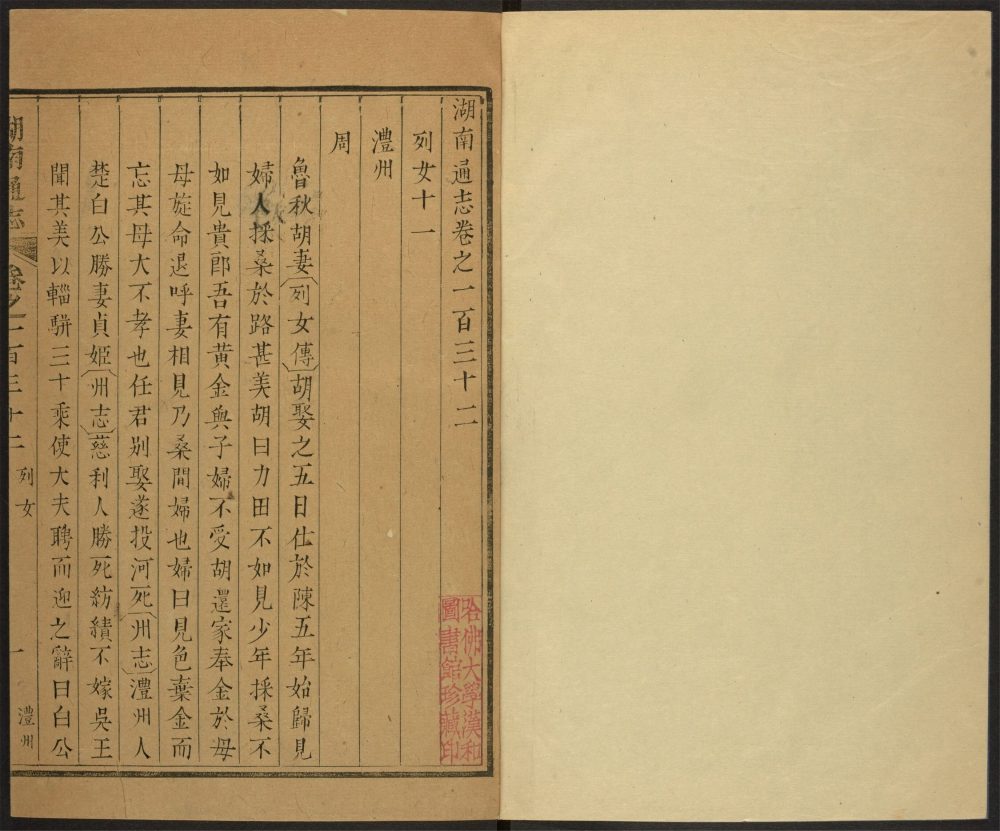 湖南通志卷之一百三十二
列女十一
澧州
周
魯秋胡妻〔列女傳〕胡娶之五日仕於陳五年始歸見
婦人採桑於路甚美胡曰力田不如見少年採桑不
如見貴郎吾有黃金與子婦不受胡還家奉金於母
母旋命退呼妻相見乃桑間婦也婦曰見色棄金而
忘其母大不孝也任君别娶遂投河死〔州志〕澧州人
楚白公勝妻貞姬〔州志〕慈利人勝死紡績不嫁吳王
聞其美以輜駢三十乘使大夫聘而迎之辭曰白公
湖南通志
卷之一百三十二
列女
一
澧州
哈佛大學漢和
圖書館珍藏印